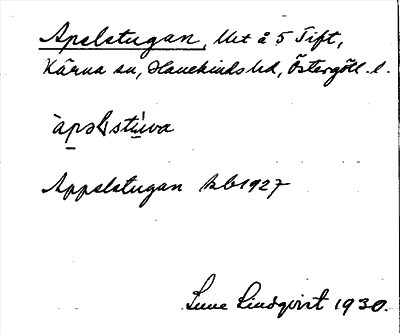 Apelstugan, Uet å 5 Tift,
Kärna sn, Hanekinds hd, Östergötl. l.
àpəlstùwa
Appelstugan kb 1927
Sune Lindqvist 1930.